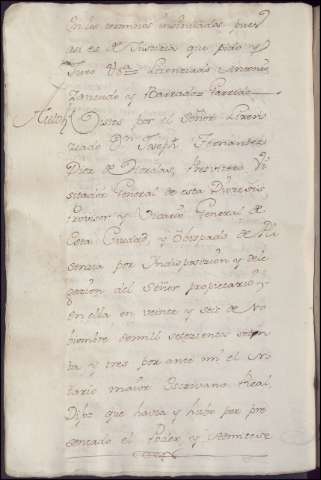 En los terminos insinuados pues
asi es de Justicia que pido y
Juro Vsa. Lizenziado Antonio
Zanbudo y Barrado Garrido
Auto Visto por el Señor Lizen
ziado Dn. Joseph Fernandez
Diez de Noralas, Presvitero Vi
sitador General de esta Diocesis
Provisor y Vicario General de
Esta Ciudad, y Obispado de
por Indisposizion y dele
gazion del Señor propietario, y
en ella en veinte y seis de No
biembre de mill setezientos seten
ta y tres por ante mi el No
tario maior Escrivano Real,
Dijo que havia y hubo por pre
sentado el Poder y